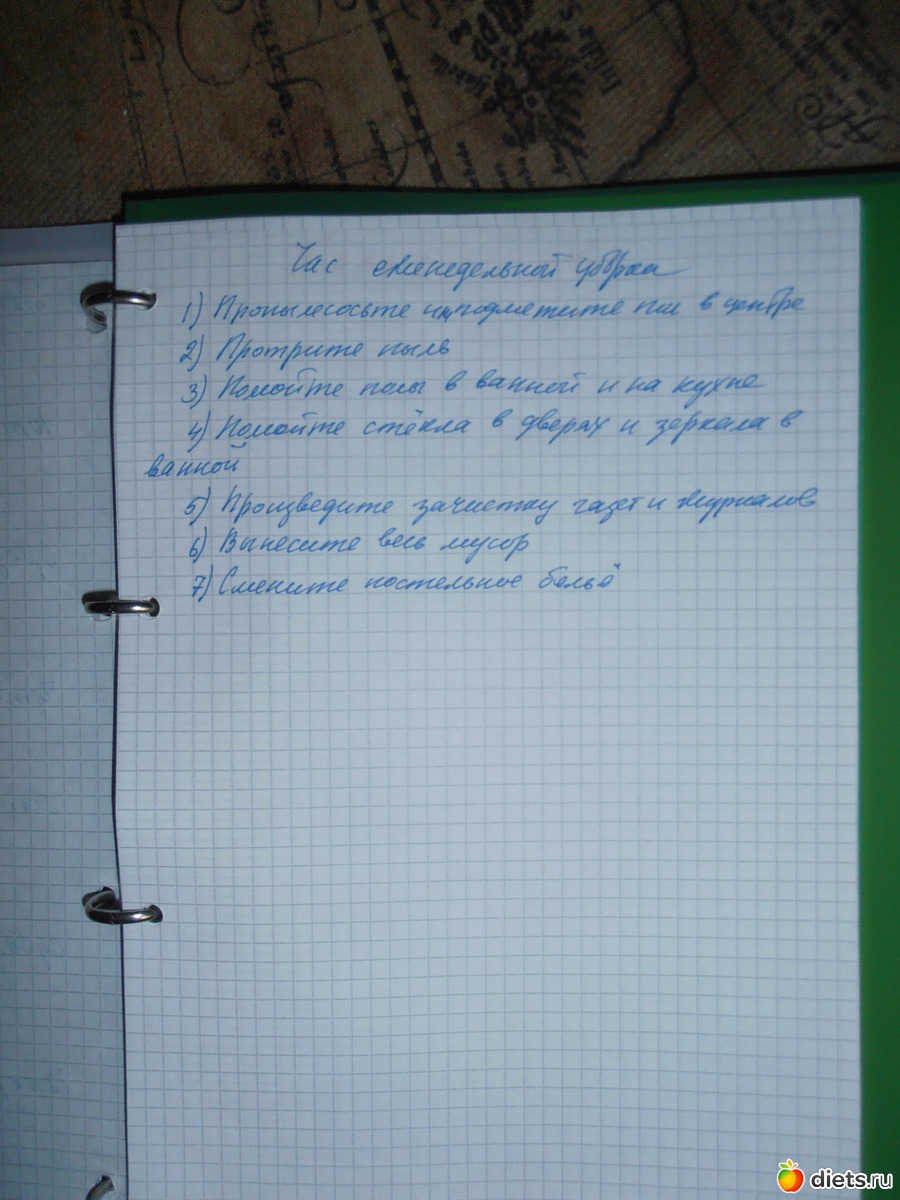 Час еженедельной уборки
1) Пропылесосьте и подметите пол в центре
2) Протрите пыль
3) Помойте полы в ванной и на кухне
4) Помойте стёкла в дверях и зеркала в
ванной
5) Произведите зачистку газет и журналов
6) Вынесите весь мусор
7) Смените постельное бельё
diets.ru